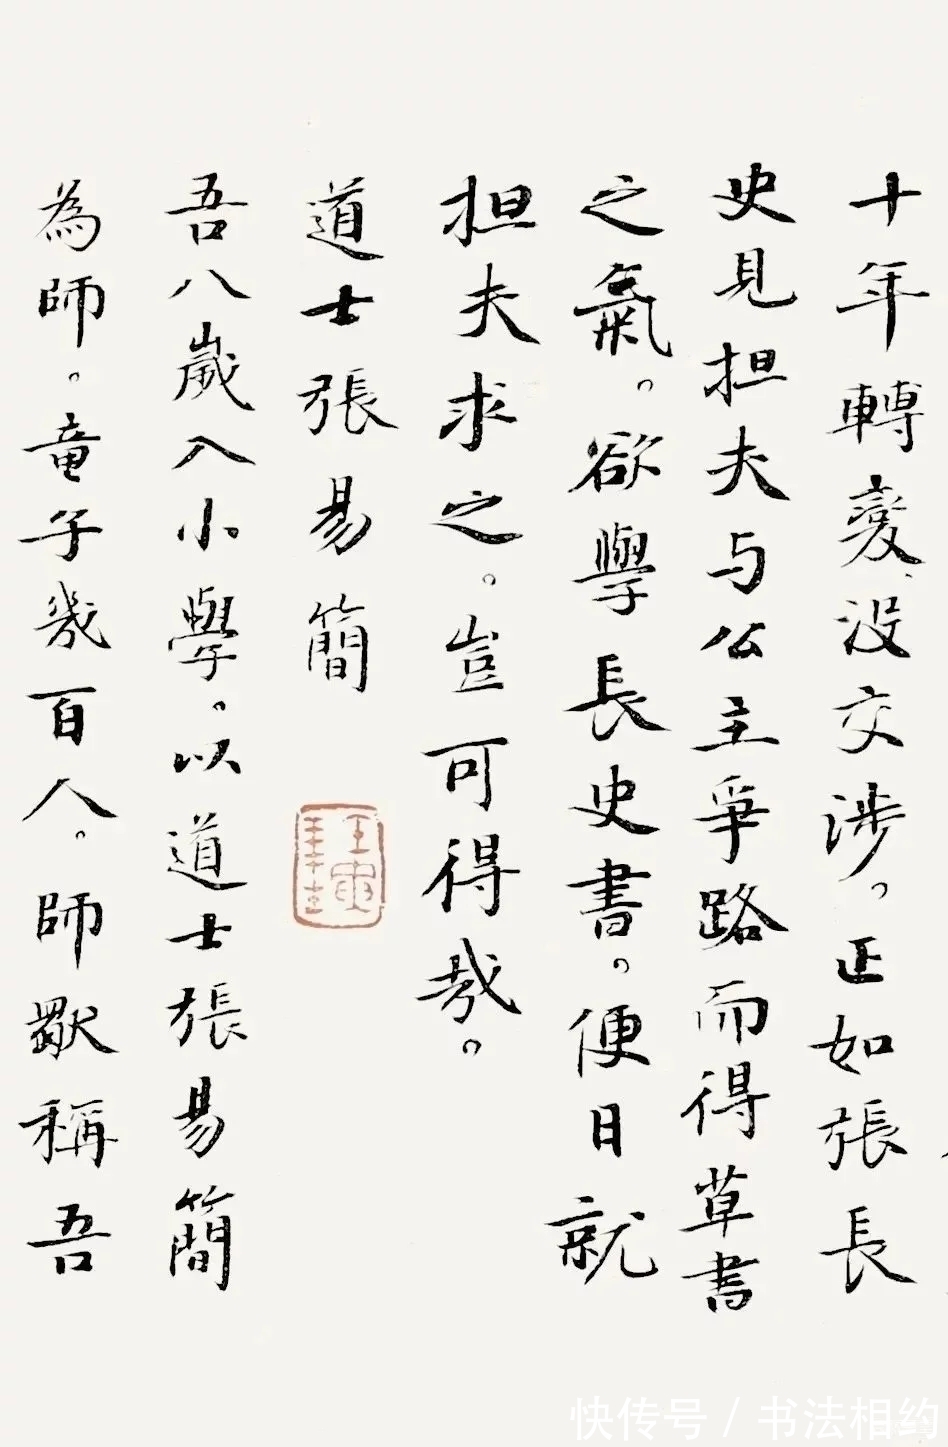 十年轉變没交涉。正如張長
史見担夫与公主爭路而得草書
之氣。欲學長史書。便日就
担夫求之。豈可得哉。
道士張易簡
吾八歲入小學。以道士張易簡
為師。童子幾百人。師獸稱吾
快传号 / 书法相约